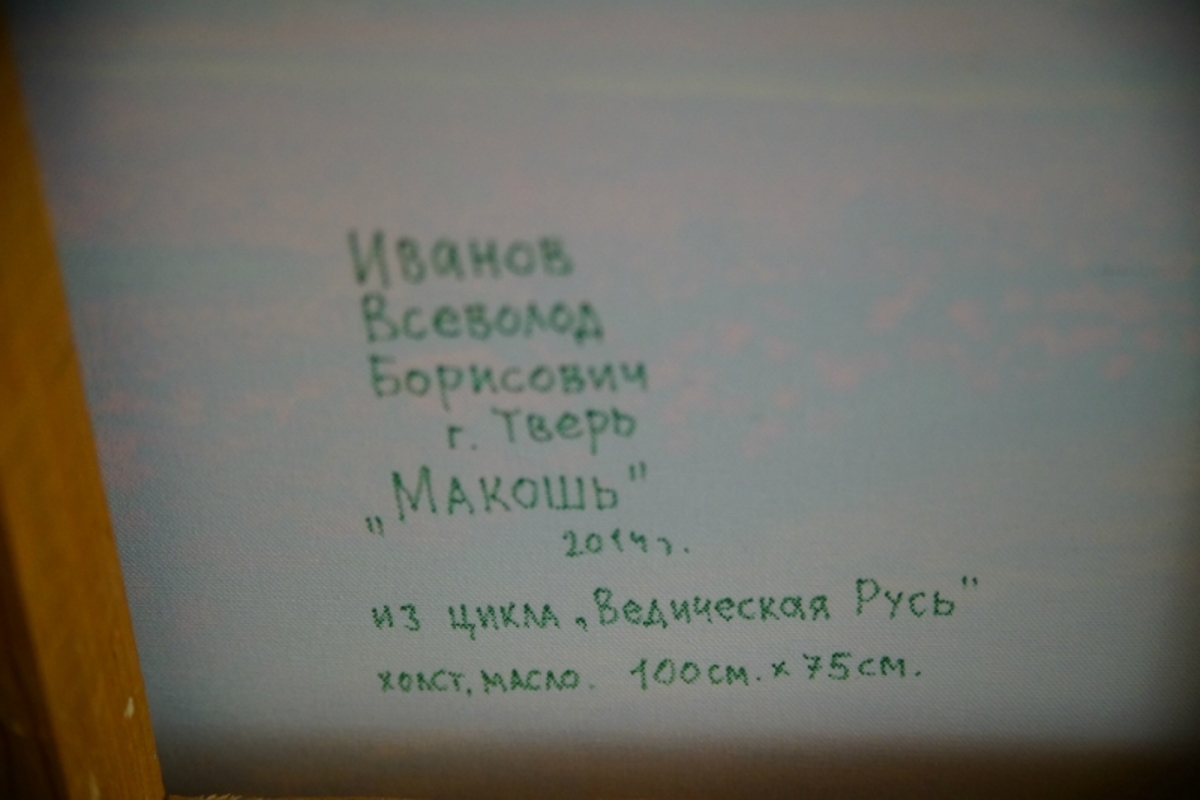 Иванов
Всеволод
Борисович
г. Тверь
„Макошь"
2014г.
из цикла „Ведическая Русь"
холст, масло. 100см. х 75см.